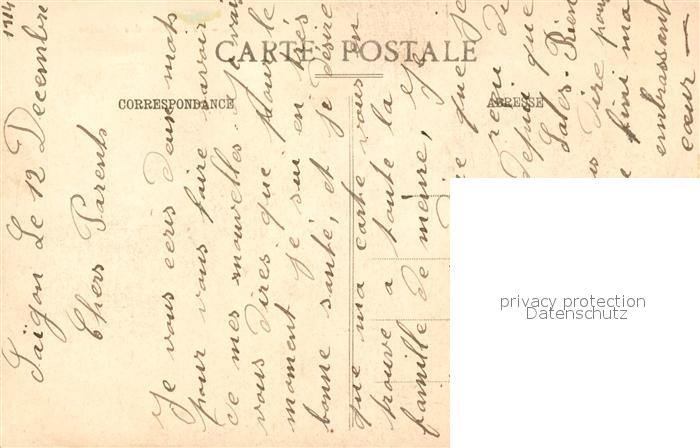 CARTE POSTALE
CORRESPONDANCE
ADRESSE
Saïgon Le 12 Decembre 1914
Chers Parents
Je vous écris deux mots
pour vous faire savoir
de mes nouvelles. Je vais
vous dires que pour le
moment je sui en très
bonne santé, et je désire
que ma carte vous en
trouve a toute la
famille de même, Je
que je
reçu de
depuis que
Rien
dire pour
fini ma
embrassant
cœur —
privacy protection
Datenschutz